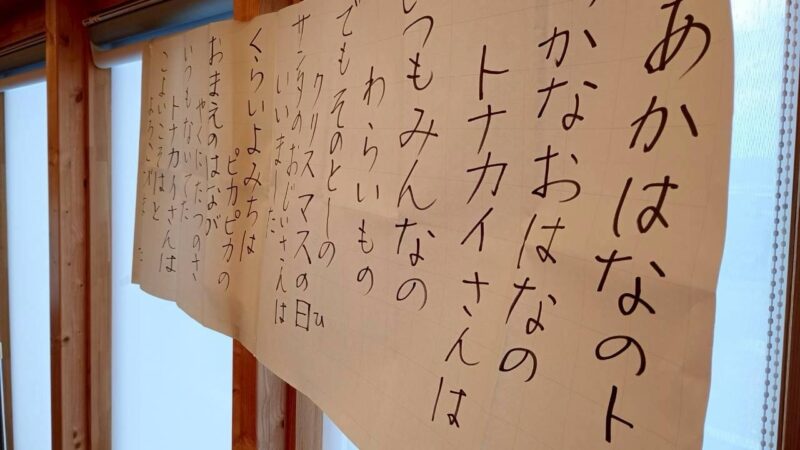 あかはなのト
っかなおはなの
トナカイさんは
いつもみんなの
わらいもの
でもそのとしの
クリスマスの日
ひ
サンタのおじいさんは
いいました
くらいよみちは
ピカピカの
おまえのはなが
やくにたつのさ
いつもないてた
トナカイさんは
こよいこそはと
よろこびました